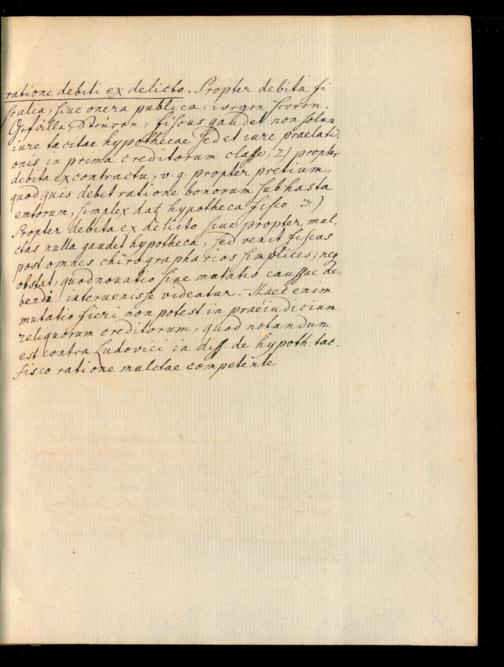 ratione debiti ex delicto. Propter debita fi
scalia, siue onera publica,
fiscus gaudet non solum
iure tacitae hypothecae sed et iure praelati
onis in prima creditorum classe, 2) propter
debita ex contractu, v. g. propter pretium,
quod quis debet ratione bonorum sub hasta
emtorum, simplex dat hypotheca fisco 3)
Propter debita ex delicto siue propter mul,
ctas nulla gaudet hypotheca, sed venit fiscus
post omnes chirographarios simplices; nec
obstat, quod nouatio siue mutatio caussae de,
bendi interuenisse videatur. Haec enim
mutatio fieri non potest in praeiudicium
reliquorum creditorum, quod notandum
est contra Ludovici in diss. de hypoth. tac.
fisco ratione mulctae competente